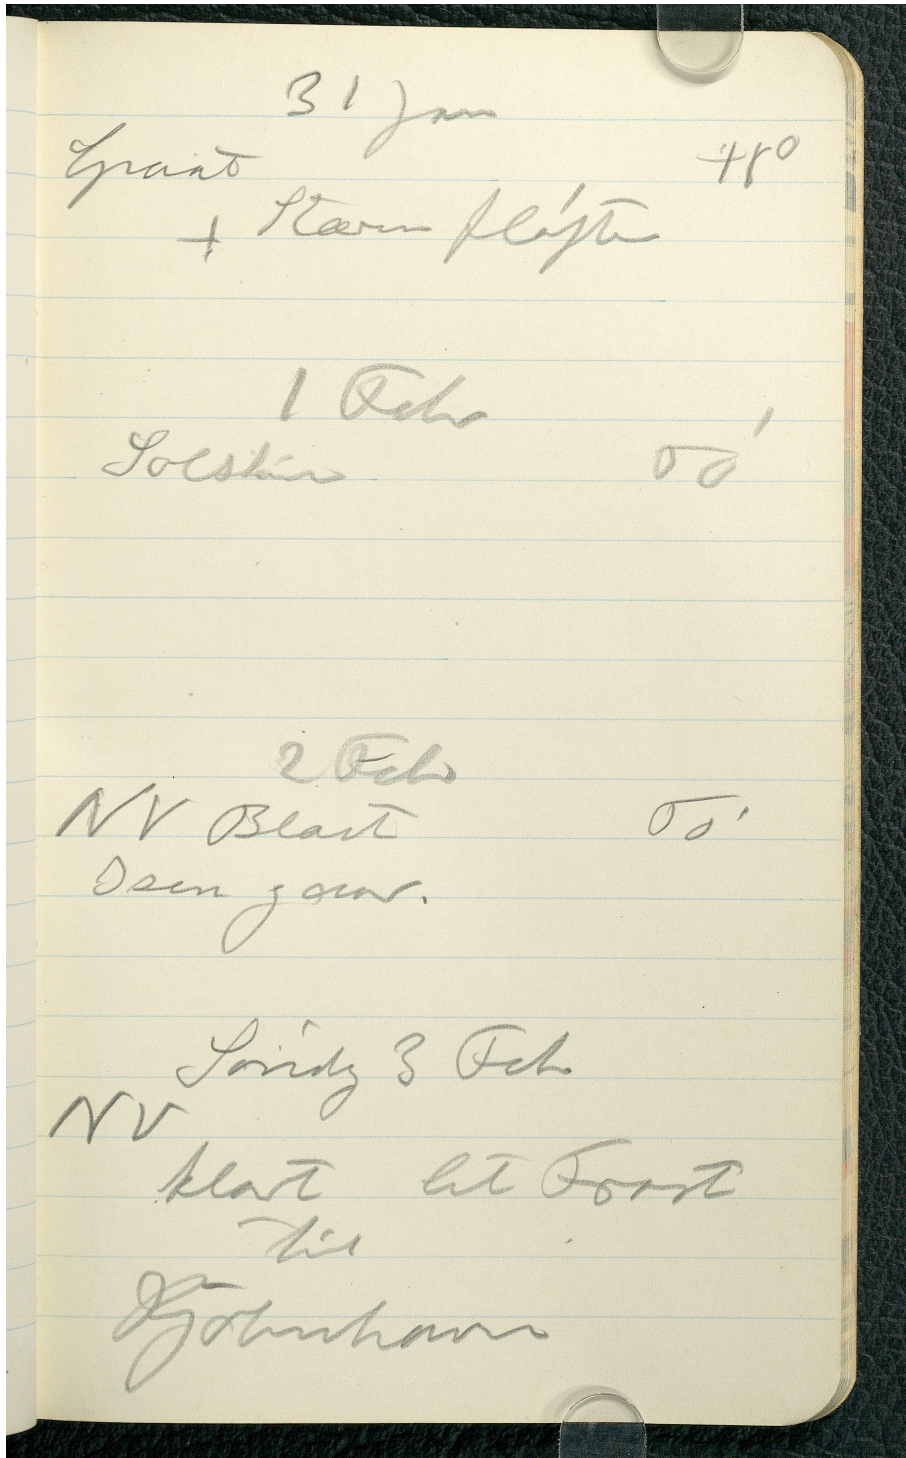 31 Jan
Graat +8°
+ Stærn fløjte
1 Febr
Solskin Tö
2 Feb
NV Blæst Tö
Isen gaar.
Söndg 3 Feb
NV
klart let Frost
til
Kjöbenhavn